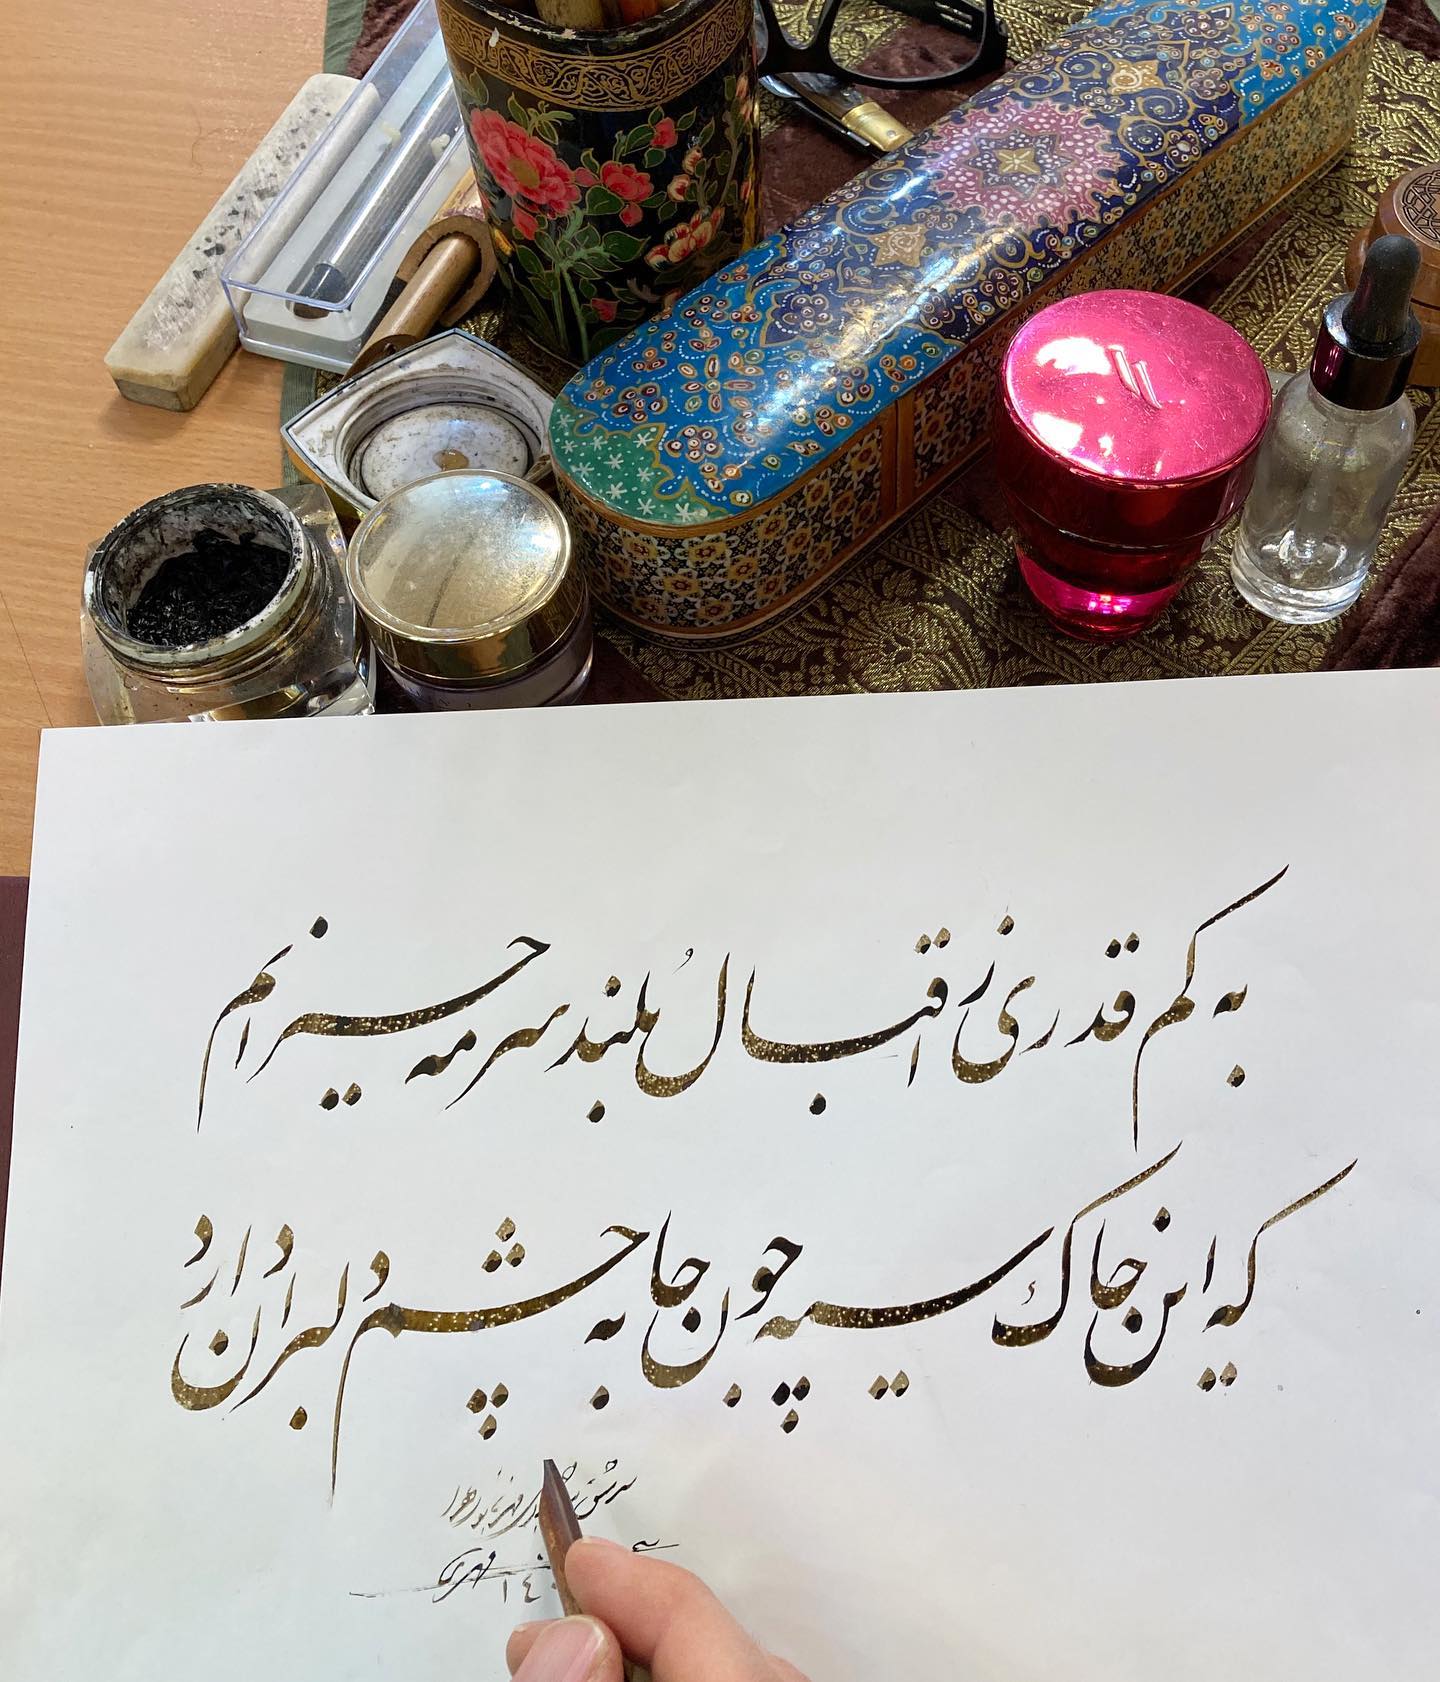 به کم قدری ز اقبال بُلند سرمه حیرانم
که این خاک سیه چون جا به چشم دلبران دارد
سرمشق
مهدی ۱۴